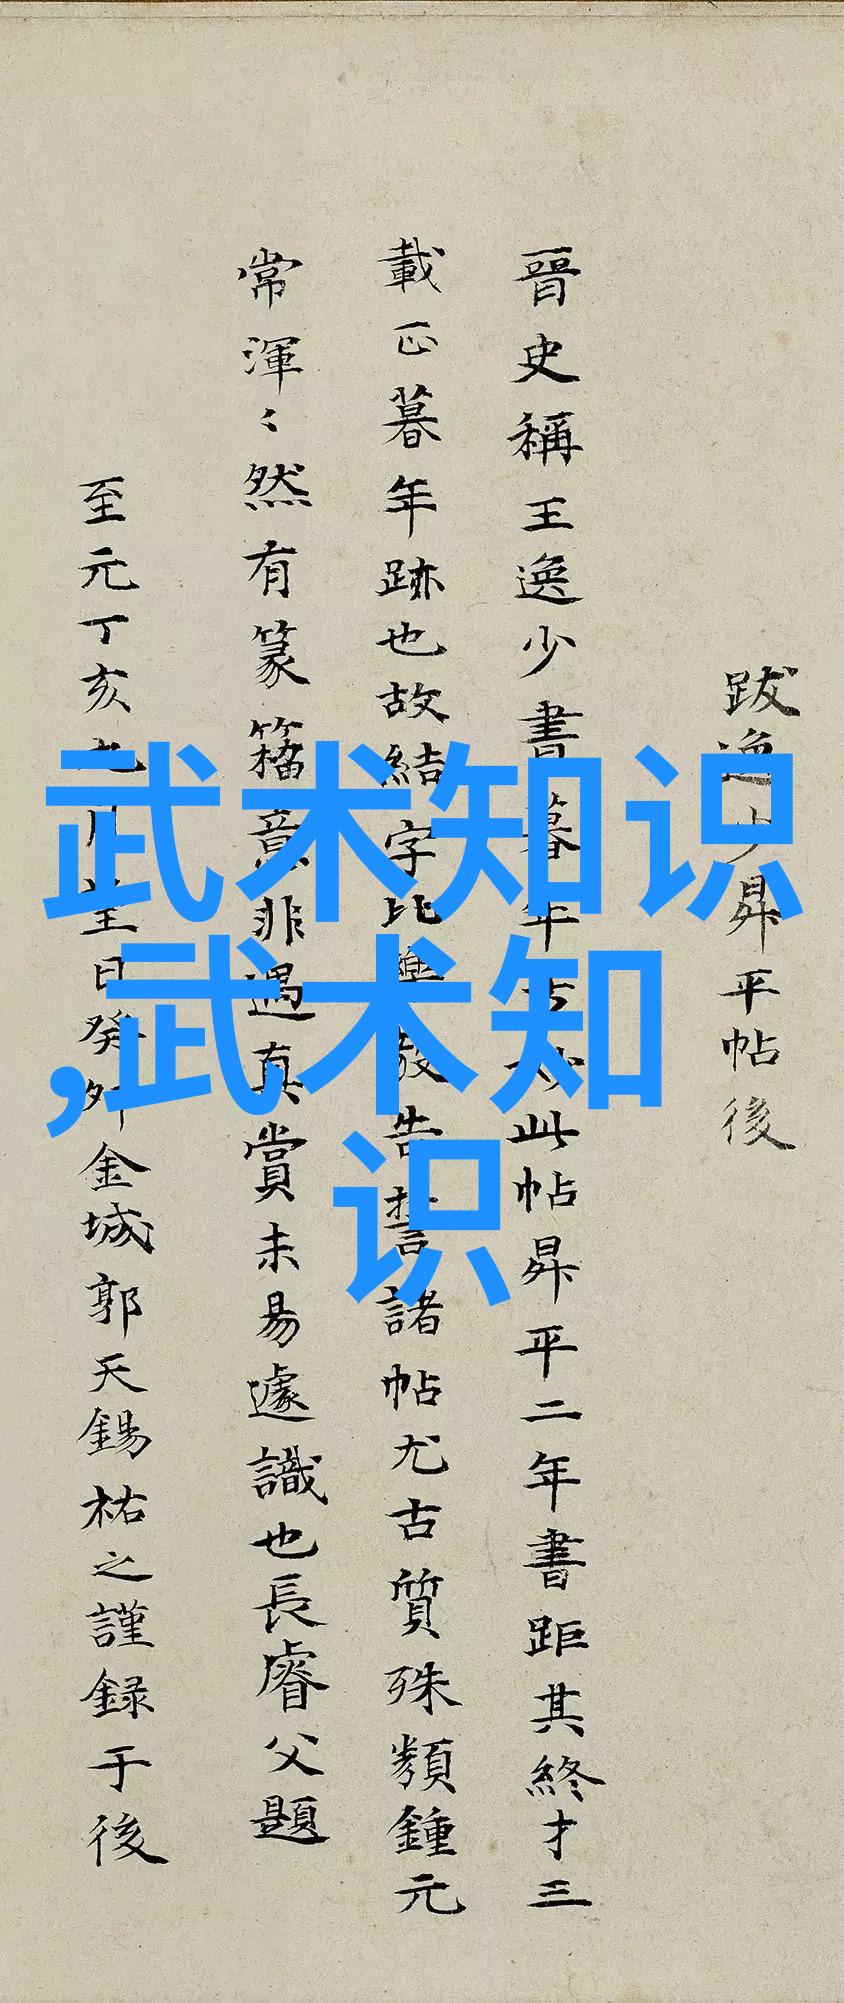 跋逸少昇平帖後
晉史稱王逸少書暮年方妙此帖昇平二年書距其終才三
載正暮年跡也故結字比樂毅告誓諸帖尤古質殊類鍾元
常渾〻然有篆籀意非遇真賞未易遽識也長睿父題
至元丁亥九月望日癸卯金城郭天錫祐之謹録于後
武术知识
,武术知
识